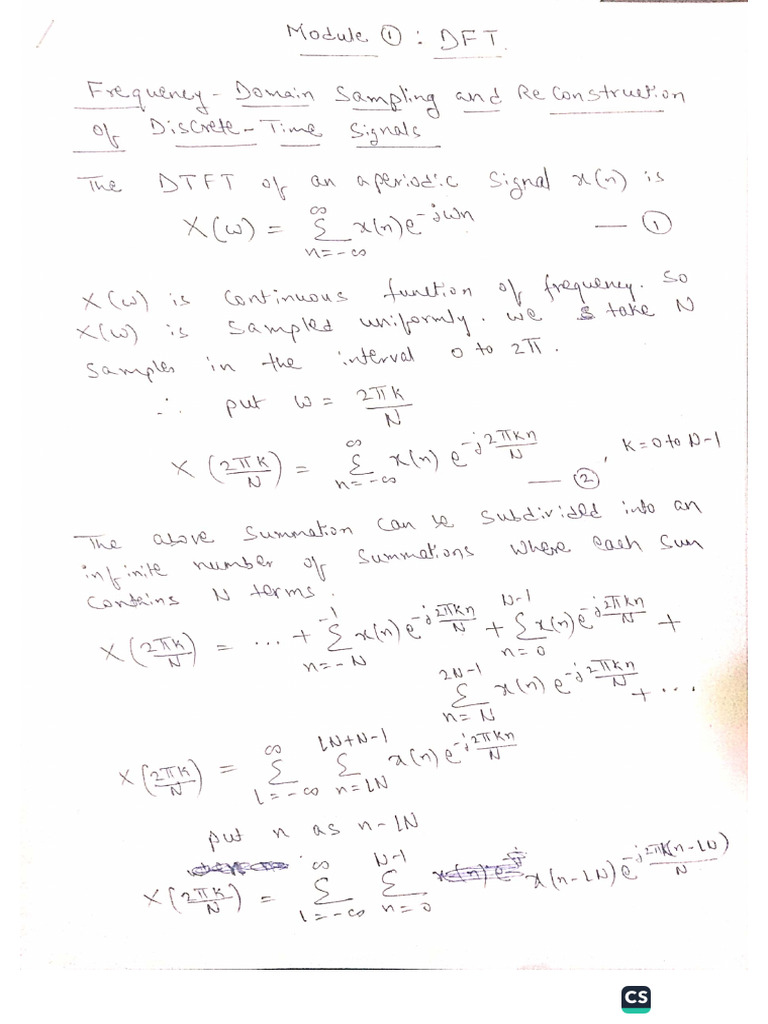 Module ① : DFT
Frequency-Domain Sampling and Reconstruction
of Discrete-Time Signals
The DTFT of an aperiodic signal x(n) is
X(ω) = ∞ Σ n=-∞ x(n)e^-jωn — ①
X(ω) is continuous function of frequency. So
X(ω) is sampled uniformly. we take N
samples in the interval 0 to 2π.
∴ put ω = 2πk/N
X(2πk/N) = ∞ Σ n=-∞ x(n) e^-j2πkn/N , k=0 to N-1 — ②
The above summation can be subdivided into an
infinite number of summations where each sum
contains N terms.
X(2πk/N) = ... + -1 Σ n=-N x(n)e^-j2πkn/N + N-1 Σ n=0 x(n)e^-j2πkn/N +
2N-1 Σ n=N x(n)e^-j2πkn/N + ...
X(2πk/N) = ∞ Σ l=-∞ lN+N-1 Σ n=lN x(n)e^-j2πkn/N
put n as n-lN
X(2πk/N) = ∞ Σ l=-∞ N-1 Σ n=0 x(n-lN)e^-j2πk(n-lN)/N
CS